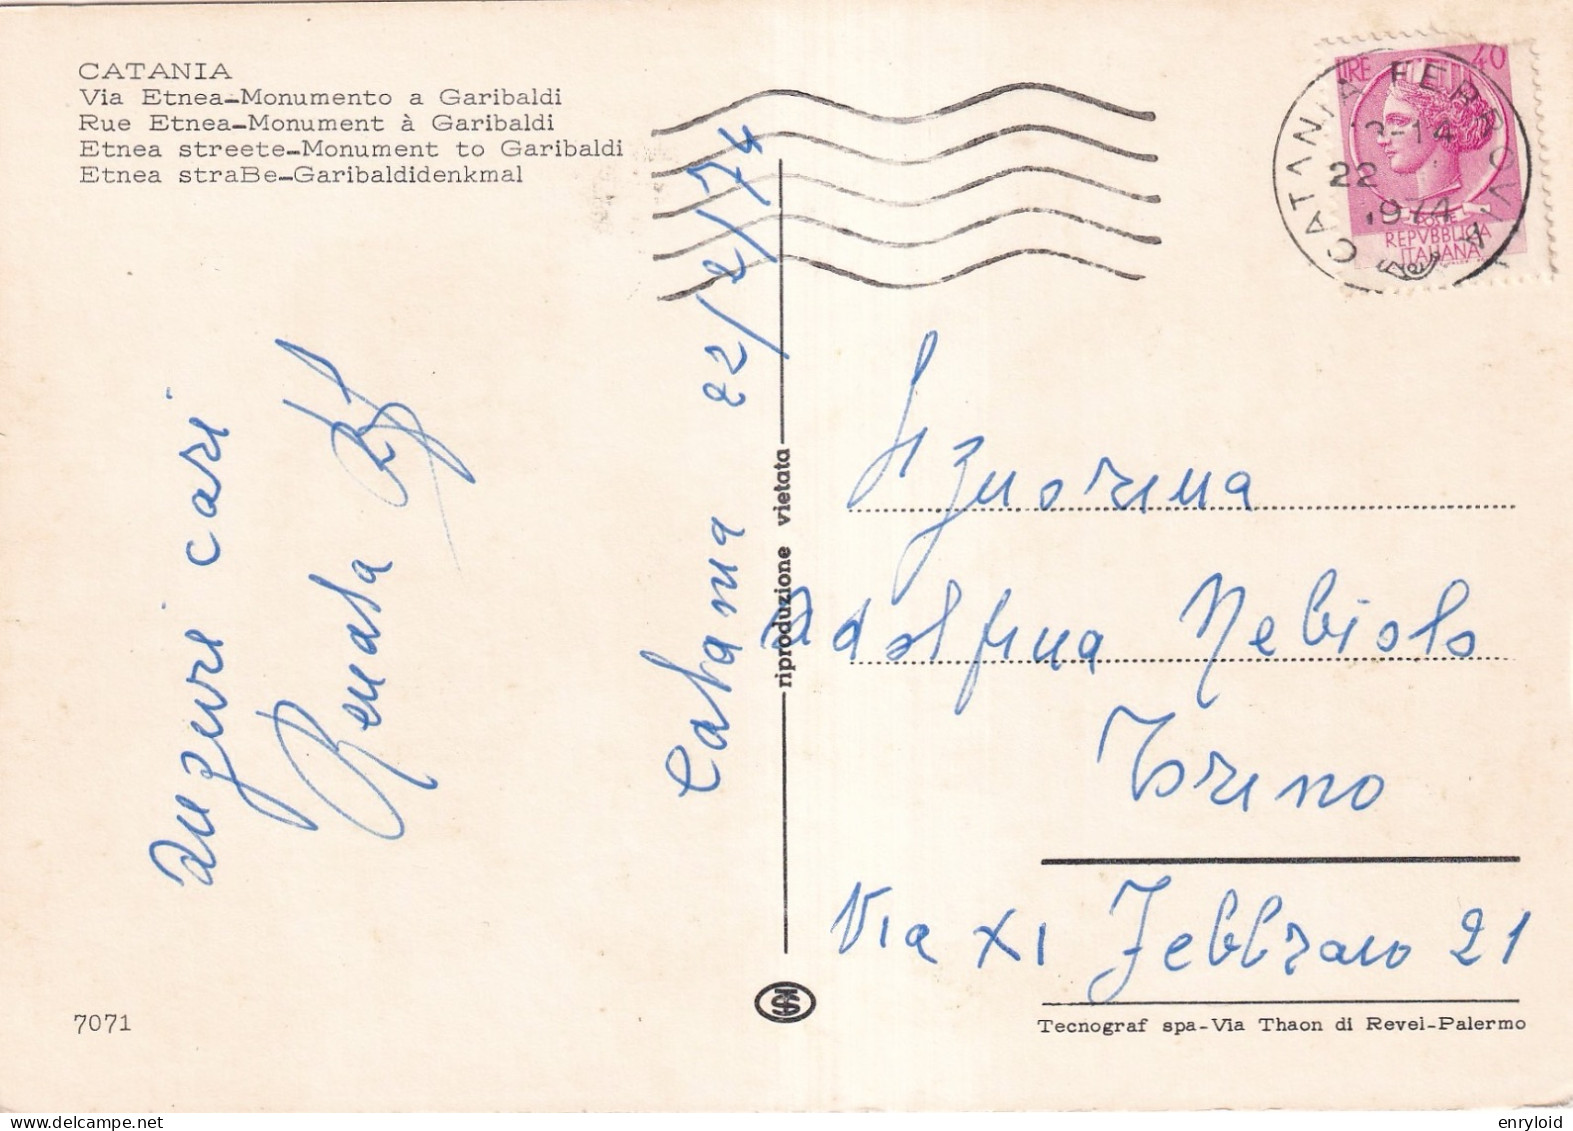 CATANIA
Via Etnea-Monumento a Garibaldi
Rue Etnea-Monument à Garibaldi
Etnea streete-Monument to Garibaldi
Etnea straBe-Garibaldidenkmal
LIRE 40
REPVBBLICA
ITALIANA
CATANIA FERROVIA
-14
22
1974
auguri cari
Renata
Catania 22/2/74
riproduzione vietata
Signorina
Adolfina Nebiolo
Torino
Via XI Febbraio 21
7071
Tecnograf spa-Via Thaon di Revel-Palermo
enryloid